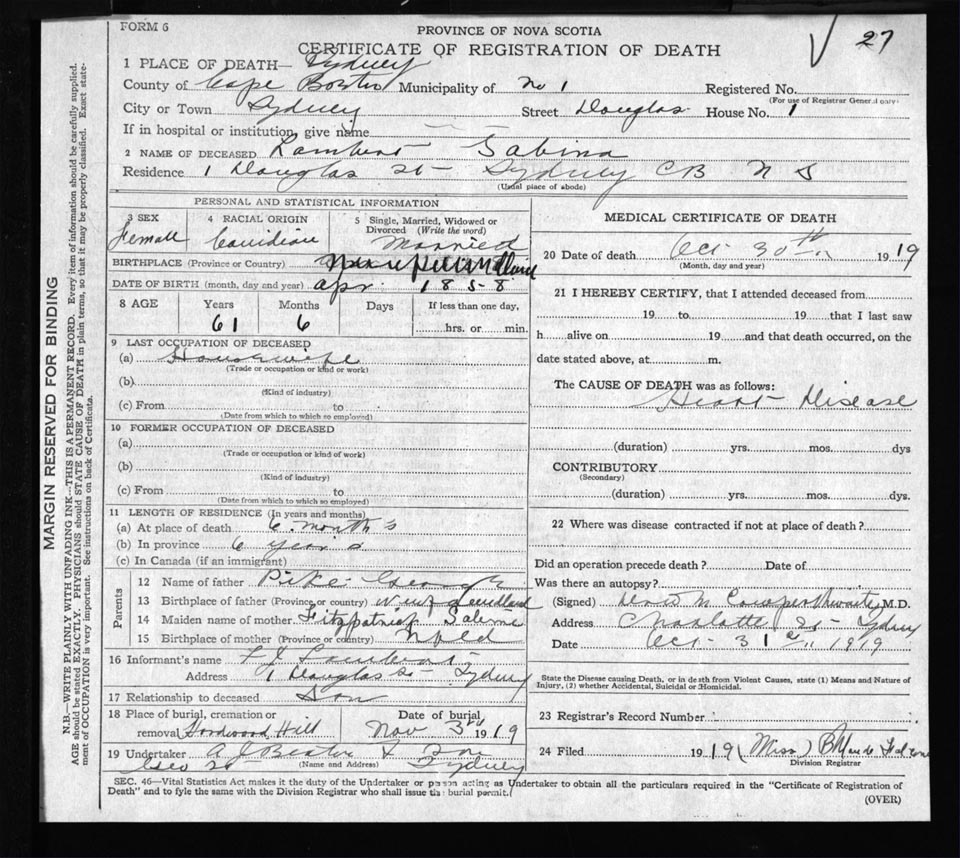 FORM 6
PROVINCE OF NOVA SCOTIA
CERTIFICATE OF REGISTRATION OF DEATH
27
1 PLACE OF DEATH— Sydney
County of Cape Breton Municipality of No 1 Registered No.
(For use of Registrar General only)
City or Town Sydney Street Douglas House No. 1
If in hospital or institution, give name
2 NAME OF DECEASED Lambert Sabina
Residence 1 Douglas St Sydney CB N S
(Usual place of abode)
PERSONAL AND STATISTICAL INFORMATION
3 SEX 4 RACIAL ORIGIN 5 Single, Married, Widowed or Divorced (Write the word)
Female Canidian Married
BIRTHPLACE (Province or Country) Newfoundland
DATE OF BIRTH (month, day and year) Apr. 1858
8 AGE Years Months Days If less than one day,
61 6 hrs. or min.
9 LAST OCCUPATION OF DECEASED
(a) Housewife
(Trade or occupation or kind or work)
(b)
(Kind of industry)
(c) From to
(Date from which to which so employed)
10 FORMER OCCUPATION OF DECEASED
(a)
(Trade or occupation or kind of work)
(b)
(Kind of industry)
(c) From to
(Date from which to which so employed)
11 LENGTH OF RESIDENCE (In years and months)
(a) At place of death 6 months
(b) In province 6 years
(c) In Canada (if an immigrant)
Parents
12 Name of father Pike George
13 Birthplace of father (Province or country) Newfoundland
14 Maiden name of mother Fitzpatrick
15 Birthplace of mother (Province or country) Nfld
16 Informant's name F J Lambert
Address 1 Douglas St Sydney
17 Relationship to deceased Son
18 Place of burial, cremation or Date of burial
removal Hardwood Hill Nov 3rd 1919
19 Undertaker A J Beaton & Son
Geo St (Name and Address) Sydney
MEDICAL CERTIFICATE OF DEATH
20 Date of death Oct 30th 1919
(Month, day and year)
21 I HEREBY CERTIFY, that I attended deceased from
19 to 19 that I last saw
h alive on 19 and that death occurred, on the
date stated above, at m.
The CAUSE OF DEATH was as follows:
Heart Disease
(duration) yrs. mos. dys
CONTRIBUTORY
(Secondary)
(duration) yrs. mos. dys.
22 Where was disease contracted if not at place of death?
Did an operation precede death? Date of
Was there an autopsy?
(Signed) M.D.
Address Charlotte St Sydney
Date Oct 31 1919
State the Disease causing Death, or in death from Violent Causes, state (1) Means and Nature of
Injury, (2) whether Accidental, Suicidal or Homicidal.
23 Registrar's Record Number
24 Filed 1919 (Miss) B Maude
Division Registrar
SEC. 46—Vital Statistics Act makes it the duty of the Undertaker or person acting as Undertaker to obtain all the particulars required in the "Certificate of Registration of
Death" and to fyle the same with the Division Registrar who shall issue the burial permit.
(OVER)
MARGIN RESERVED FOR BINDING
N.B.—WRITE PLAINLY WITH UNFADING INK—THIS IS A PERMANENT RECORD. Every item of information should be carefully supplied.
AGE should be stated EXACTLY. PHYSICIANS should STATE CAUSE OF DEATH in plain terms, so that it may be properly classified. Exact state-
ment of OCCUPATION is very important. See instructions on back of Certificata.